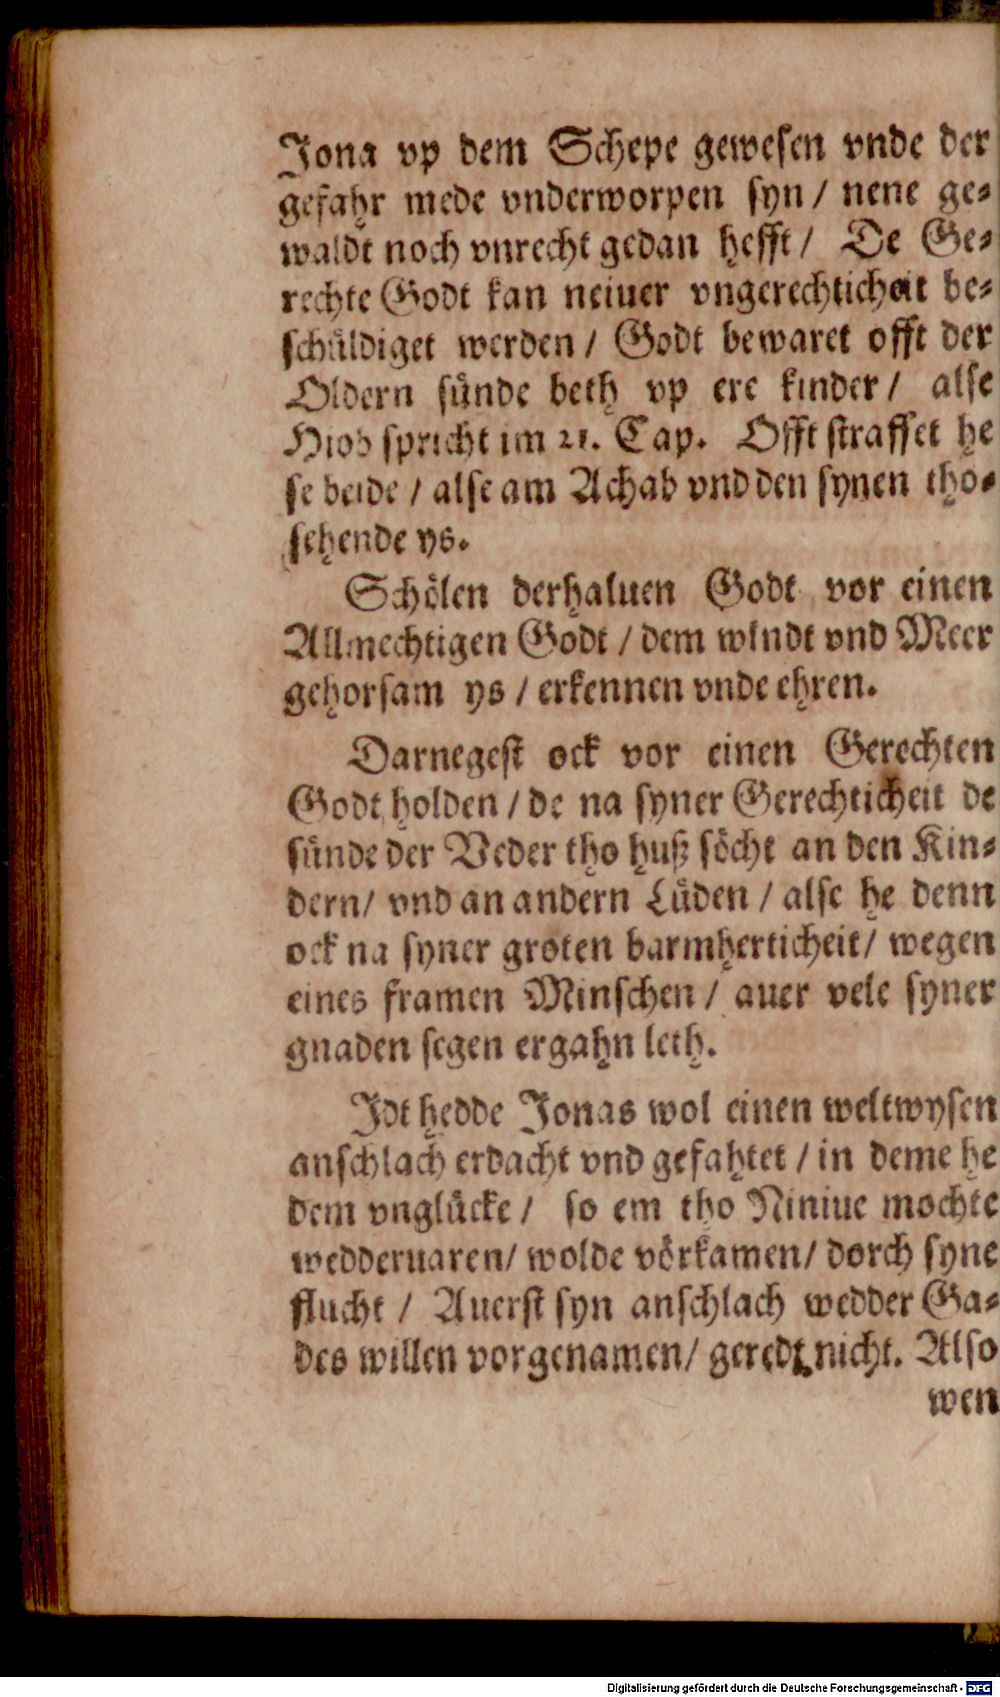 Jona vp dem Schepe gewesen vnde der
gefahr mede vnderworpen syn / nene ge⸗
waldt noch vnrecht gedan hefft / De Ge⸗
rechte Godt kan neiner vngerechticheit be⸗
schüldiget werden / Godt bewaret offt der
Oldern sünde beth vp ere kinder / alse
Hiob spricht im 21. Cap. Offt straffet he
se beide / alse am Achab vnd den synen tho⸗
sehende ys.
Schölen derhaluen Godt vor einen
Allmechtigen Godt / dem windt vnd Meer
gehorsam ys / erkennen vnde ehren.
Darnegest ock vor einen Gerechten
Godt holden / de na syner Gerechticheit de
sünde der Veder tho huß söcht an den Kin⸗
dern / vnd an andern Lüden / alse he denn
ock na syner groten barmherticheit / wegen
eines framen Minschen / auer vele syner
gnaden segen ergahn leth.
Idt hedde Jonas wol einen weltwysen
anschlach erdacht vnd gefahtet / in deme he
dem vnglücke / so em tho Niniue mochte
wedderuaren / wolde vörkamen / dorch syne
flucht / Auerst syn anschlach wedder Ga⸗
des willen vorgenamen / geredt nicht. Also
wen
Digitalisierung gefördert durch die Deutsche Forschungsgemeinschaft - DFG